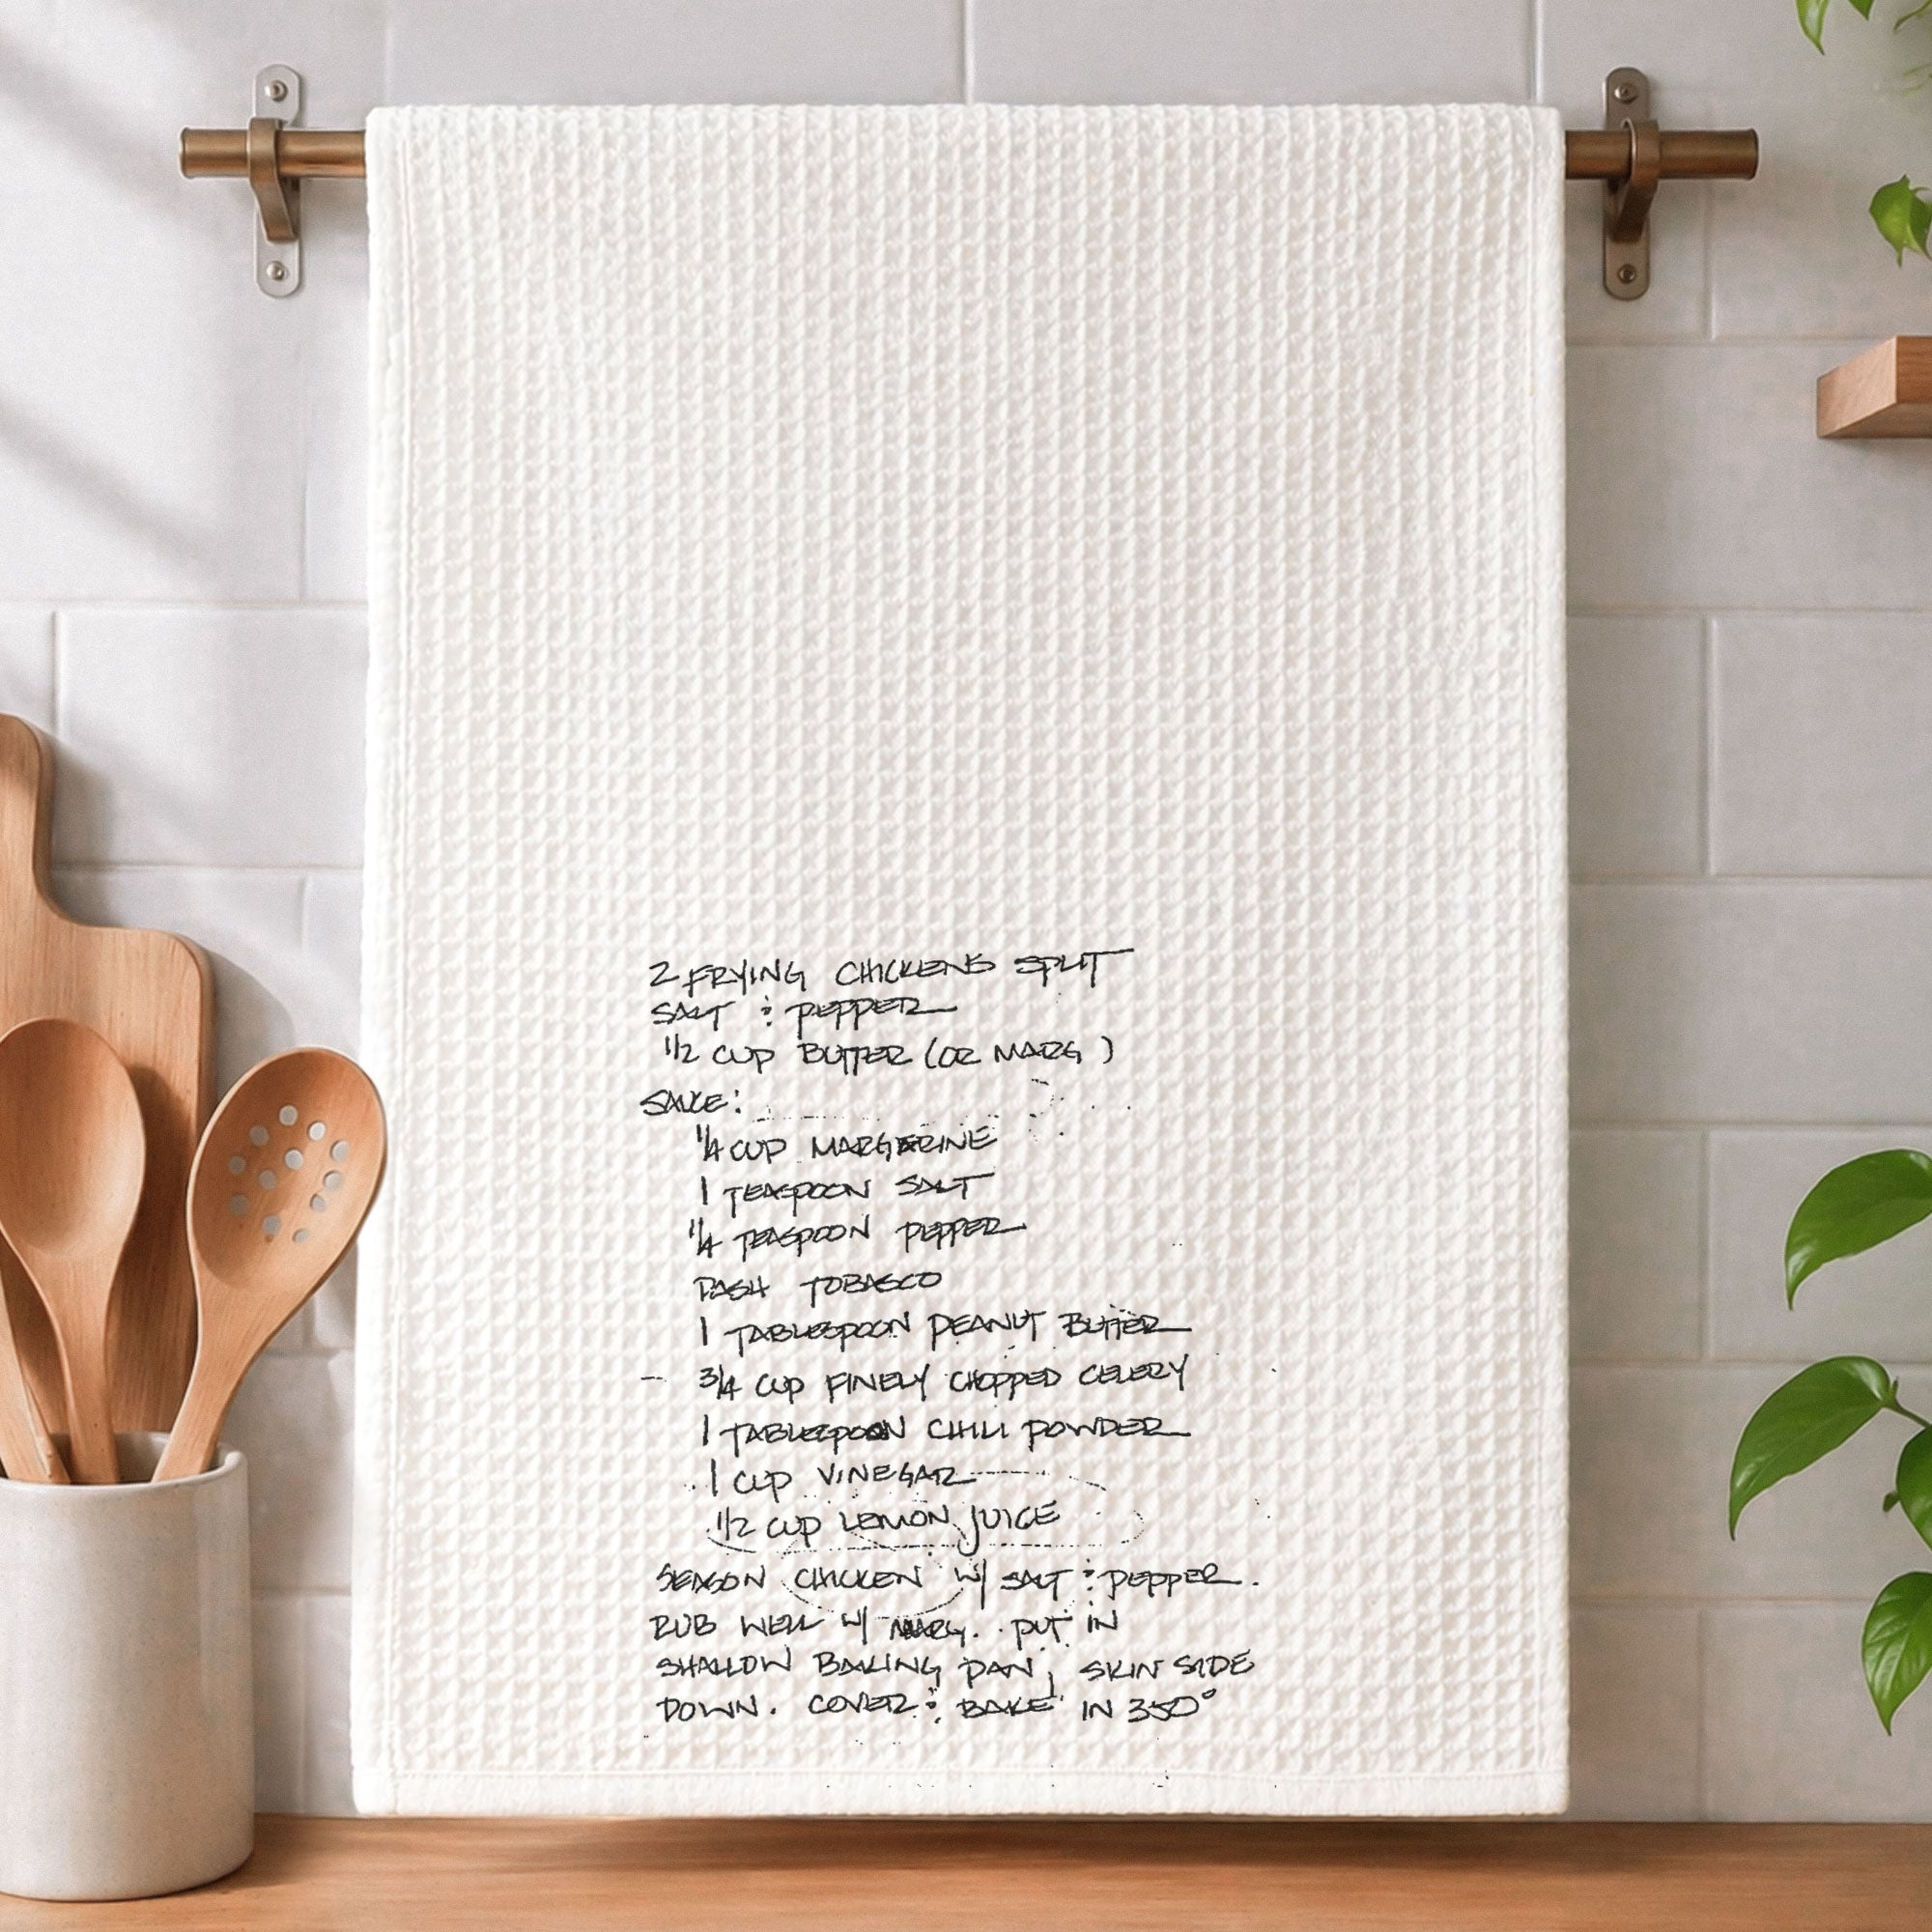 2 FRYING CHICKENS SPLIT
SALT & PEPPER
1/2 CUP BUTTER (OR MARG )
SAUCE:
1/4 CUP MARGERINE
1 TEASPOON SALT
1/4 TEASPOON PEPPER
DASH TOBASCO
1 TABLESPOON PEANUT BUTTER
3/4 CUP FINELY CHOPPED CELERY
1 TABLESPOON CHILI POWDER
1 CUP VINEGAR
1/2 CUP LEMON JUICE
SEASON CHICKEN W/ SALT & PEPPER.
RUB WELL W/ MARG. PUT IN
SHALLOW BAKING PAN, SKIN SIDE
DOWN. COVER & BAKE IN 350°